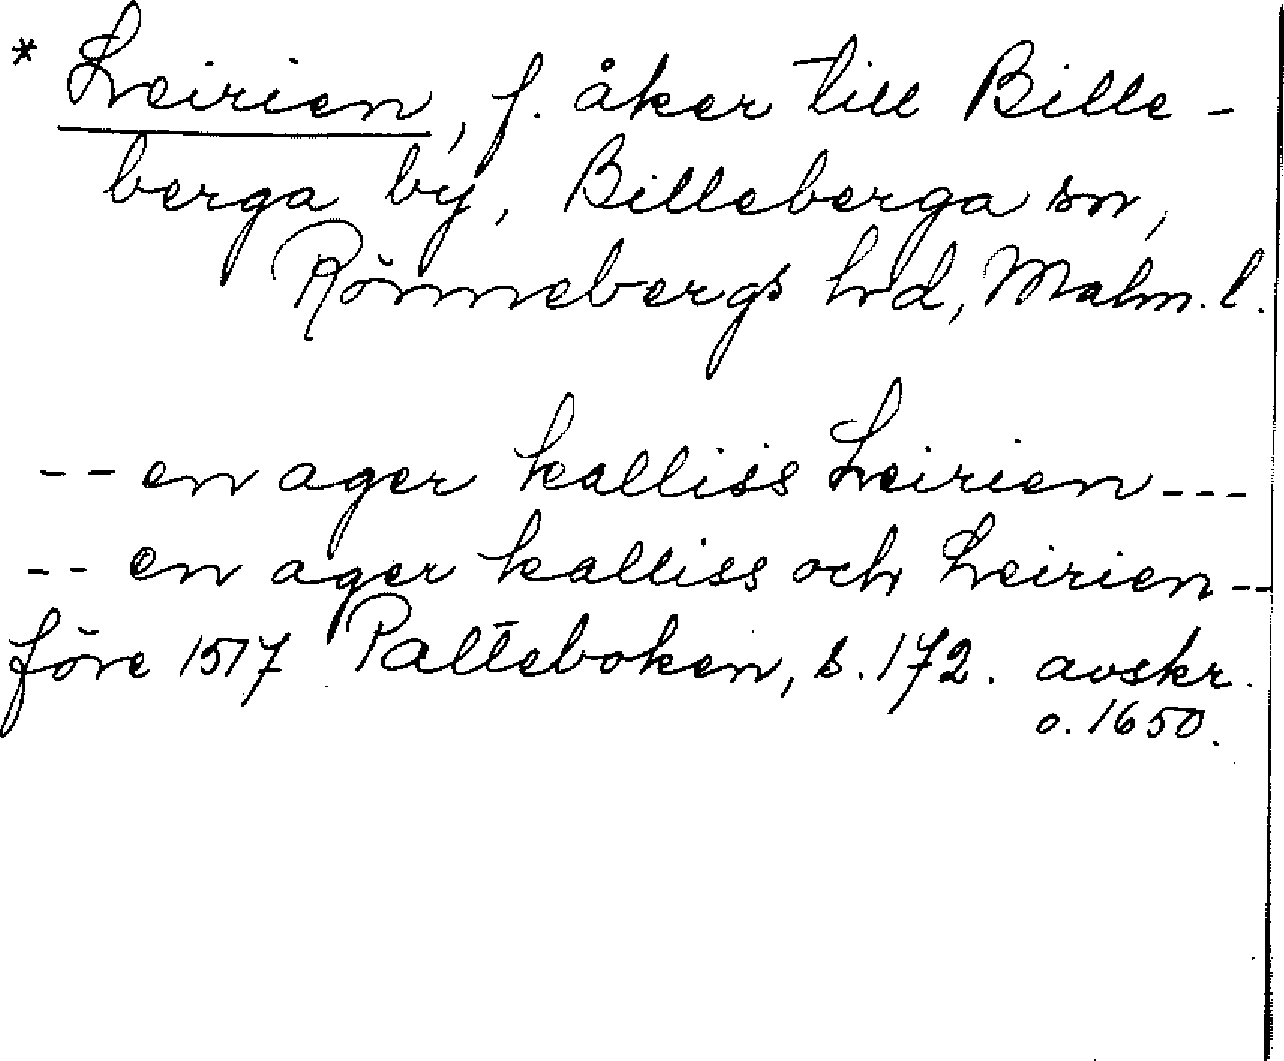 * Leirien, f. åker till Bille-
berga by, Billeberga sn,
Rönnebergs hd, Malm. l.
-- en ager kalliss Leirien ---
-- en ager kalliss och Leirien --
före 1517 Palteboken, s. 172. avskr.
o. 1650.